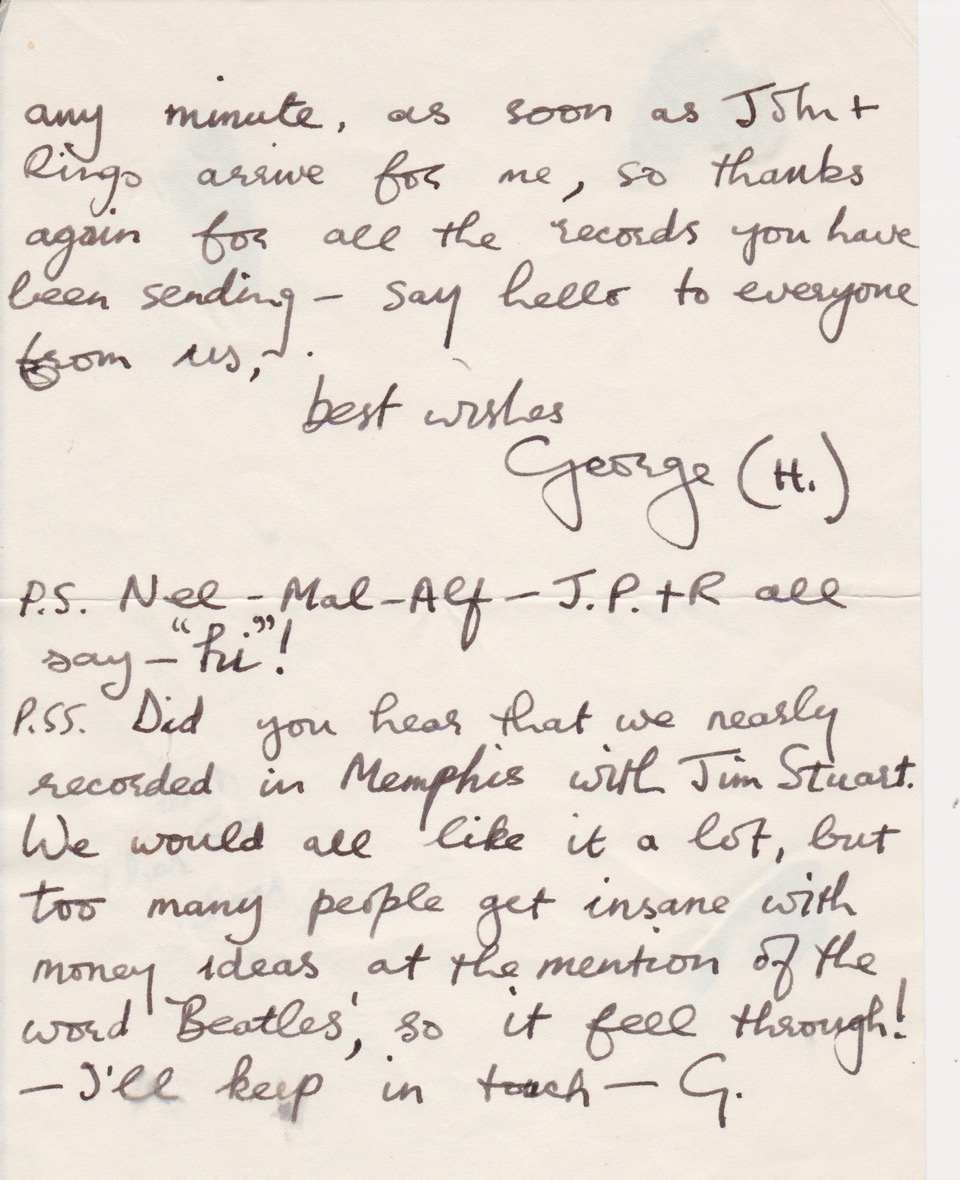 any minute, as soon as John +
Ringo arrive for me, so thanks
again for all the records you have
been sending – say hello to everyone
from us, – .
best wishes
George (H.)
P.S. Nel – Mal – Alf – J. P. + R all
say – “hi”!
P.SS. Did you hear that we nearly
recorded in Memphis with Jim Stuart.
We would all like it a lot, but
too many people get insane with
money ideas at the mention of the
word 'Beatles', so it fell through!
– I'll keep in touch – G.